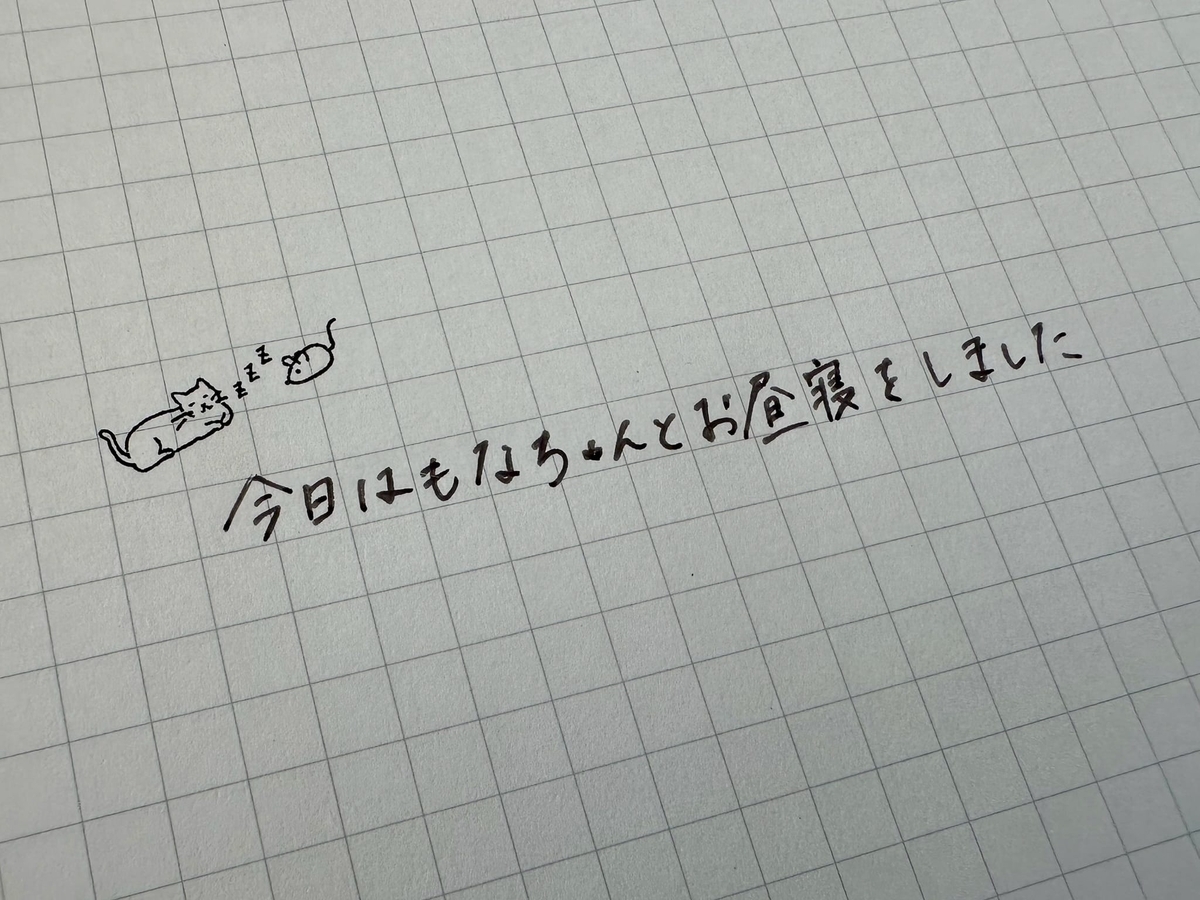 z z z z
今日はもなちゃんとお昼寝をしました